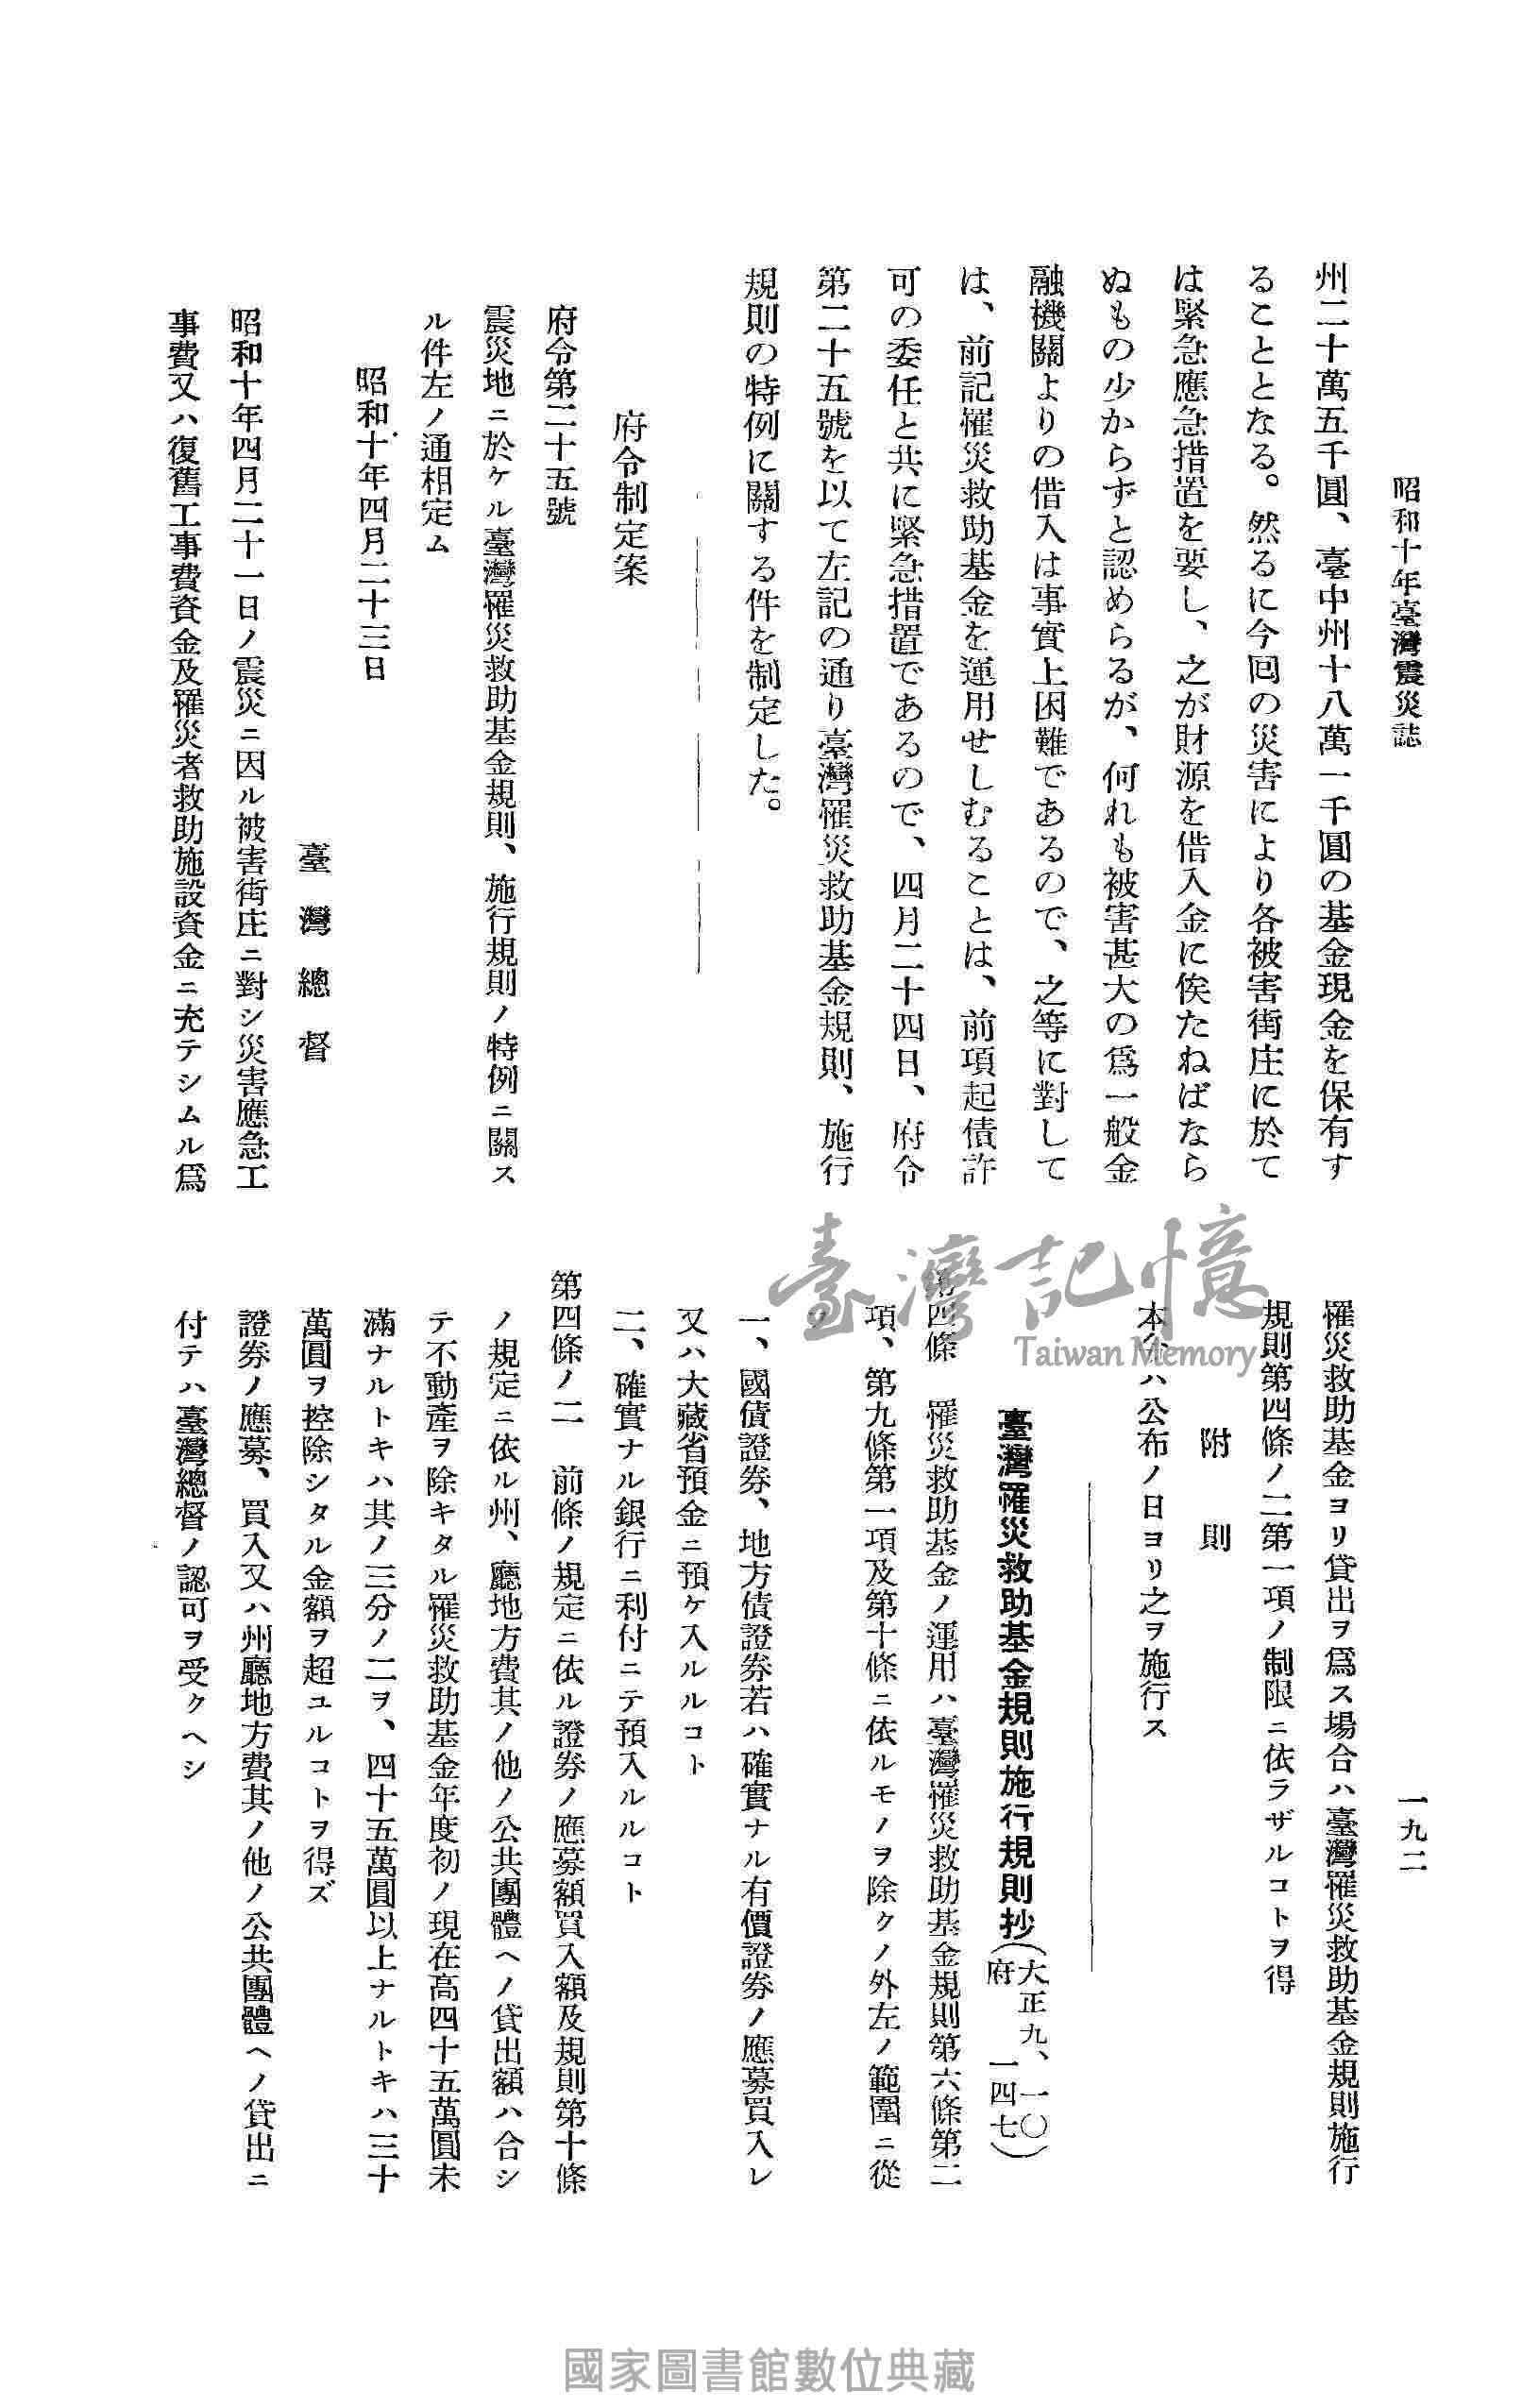 昭和十年臺灣震災誌
一九二
州二十萬五千圓、臺中州十八萬一千圓の基金現金を保有す
ることとなる。然るに今回の災害により各被害街庄に於て
は緊急應急措置を要し、之が財源を借入金に俟たねばなら
ぬもの少からずと認めらるが、何れも被害甚大の爲一般金
融機關よりの借入は事實上困難であるので、之等に對して
は、前記罹災救助基金を運用せしむることは、前項起債許
可の委任と共に緊急措置であるので、四月二十四日、府令
第二十五號を以て左記の通り臺灣罹災救助基金規則、施行
規則の特例に關する件を制定した。
府令制定案
府令第二十五號
震災地ニ於ケル臺灣罹災救助基金規則、施行規則ノ特例ニ關ス
ル件左ノ通相定ム
昭和十年四月二十三日
臺灣總督
昭和十年四月二十一日ノ震災ニ因ル被害街庄ニ對シ災害應急工
事費又ハ復舊工事費資金及罹災者救助施設資金ニ充テシムル爲
罹災救助基金ヨリ貸出ヲ爲ス場合ハ臺灣罹災救助基金規則施行
規則第四條ノ二第一項ノ制限ニ依ラザルコトヲ得
附則
本令ハ公布ノ日ヨリ之ヲ施行ス
臺灣罹災救助基金規則施行規則抄(大正九、一〇府一四七)
第四條 罹災救助基金ノ運用ハ臺灣罹災救助基金規則第六條第二
項、第九條第一項及第十條ニ依ルモノヲ除クノ外左ノ範圍ニ從
フ
一、國債證券、地方債證券若ハ確實ナル有價證券ノ應募買入レ
又ハ大藏省預金ニ預ケ入ルルコト
二、確實ナル銀行ニ利付ニテ預入ルルコト
第四條ノ二 前條ノ規定ニ依ル證券ノ應募額買入額及規則第十條
ノ規定ニ依ル州、廳地方費其ノ他ノ公共團體ヘノ貸出額ハ合シ
テ不動產ヲ除キタル罹災救助基金年度初ノ現在高四十五萬圓未
滿ナルトキハ其ノ三分ノ二ヲ、四十五萬圓以上ナルトキハ三十
萬圓ヲ控除シタル金額ヲ超ユルコトヲ得ズ
證券ノ應募、買入又ハ州廳地方費其ノ他ノ公共團體ヘノ貸出ニ
付テハ臺灣總督ノ認可ヲ受クヘシ
臺灣記憶
Taiwan Memory
國家圖書館數位典藏